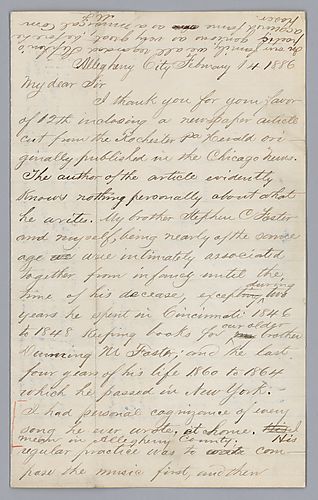 Allegheny City February 14 1886
My dear Sir
I thank you for your favor
of 12th inclosing a newspaper article
cut from the Rochester Pa Herald ori-
ginally published in the Chicago News.
The author of the article evidently
knows nothing personally about what
he write. My brother Stephen C Foster
and myself, being nearly of the same
age we were intimately associated
together from infancy until the
time of his decease, excepting during two
years he spent in Cincinnati 1846
to 1848 keeping books for our older brother
Dunning M Foster, and the last
four years of his life 1860 to 1864
which he passed in New York.
I had personal cognizance of every
song he ever wrote at home. I
mean, in Allegheny County. His
regular practice was to com-
pose the music first, and then